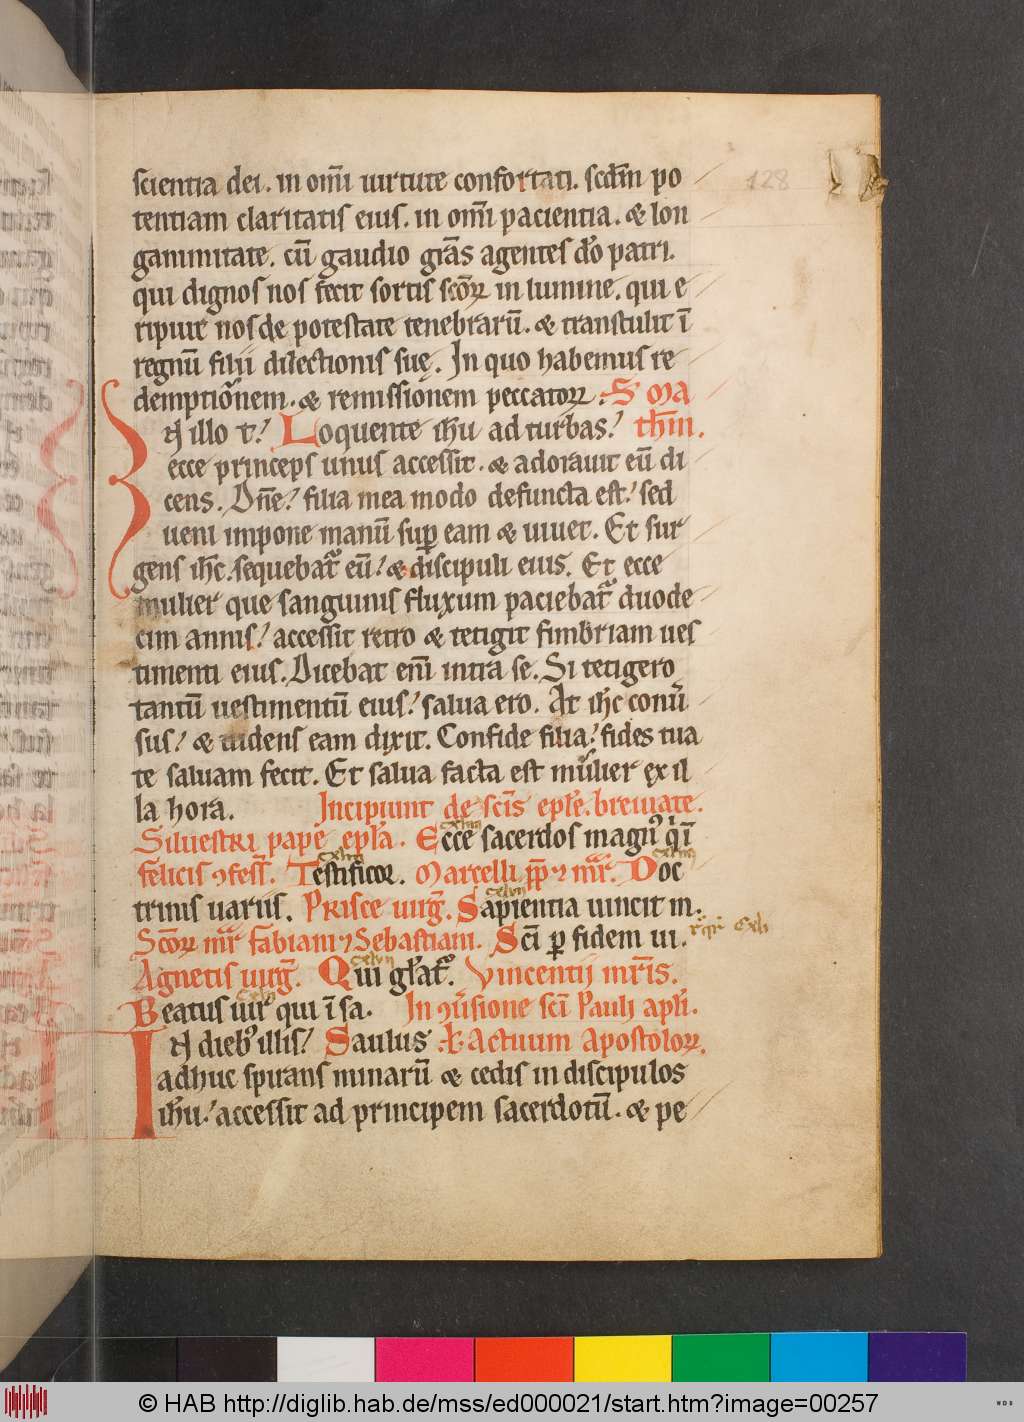 scientia dei. in om̅i uirtute confortati. scd̅m po
tentiam claritatis eius. in om̅i pacientia. & lon
ganimitate. cu̅ gaudio gr̅as agentes do̅ patri.
qui dignos nos fecit sortis sco̅ꝝ in lumine. qui e
ripuit nos de potestate tenebraru̅. & transtulit i̅
regnu̅ filii dilectionis suę. In quo habemus re
demptio̅nem. & remissionem peccatoꝝ. S Ma
N illo t̅. Loquente ih̅u ad turbas. th̅m.
ecce princeps unus accessit. & adorauit eu̅ di
cens. Dn̅e. filia mea modo defuncta est. sed
ueni impone manu̅ suꝑ eam & uiuet. Et sur
gens ih̅c. sequebat̅ eu̅. & discipuli eius. Et ecce
mulier que sanguinis fluxum paciebat̅ duode
cim annis. accessit retro & tetigit fimbriam ues
timenti eius. Dicebat eni̅ intra se. Si tetigero
tantu̅ uestimentu̅ eius. salua ero. At ih̅c conu̅
sus. & uidens eam dixit. Confide filia. fides tua
te saluam fecit. Et salua facta est mulier ex il
la hora. Incipiunt de sci̅s epl̅e. breuiate.
Siluestri pape epl̅a. Ecce sacerdos magn᷒ q̅i̅
felicis ꝯfess̅. Testificor. Marcelli pp̅ ⁊ mr̅. Doc
trinis uariis. Prisce uirg̅. Sapientia uincit m.
Sco̅ꝝ mr̅ fabiani ⁊ Sebastiani. Sci̅ ꝑ fidem ui.
Agnetis uirg̅. Qui gl̅at᷒. Vincentij mr̅is.
Beatus uir qui i̅ sa. In ꝯu̅sione sci̅ Pauli apl̅i.
IN dieb᷒ illis. Saulus Actuum Apostoloꝝ.
adhuc spirans minaru̅ & cedis in discipulos
ih̅u. accessit ad principem sacerdotu̅. & pe
128
© HAB http://diglib.hab.de/mss/ed000021/start.htm?image=00257